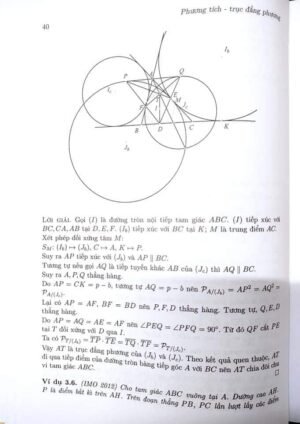 Phương tích - trục đẳng phương
40
P
Q
A
I_b
I_c
F
E
M
I
J_c
B
D
C
K
J_b
LỜI GIẢI. Gọi (I) là đường tròn nội tiếp tam giác ABC. (I) tiếp xúc với
BC, CA, AB tại D, E, F. (I_b) tiếp xúc với BC tại K; M là trung điểm AC.
Xét phép đối xứng tâm M:
S_M: (I_b) ↦ (J_b), C ↦ A, K ↦ P.
Suy ra AP tiếp xúc với (J_b) và AP ∥ BC.
Tương tự nếu gọi AQ là tiếp tuyến khác AB của (J_c) thì AQ ∥ BC.
Suy ra A, P, Q thẳng hàng.
Do AP = CK = p − b, tương tự AQ = p − b nên P_{A/(J_b)} = AP² = AQ² =
P_{A/(J_c)}.
Lại có AP = AF, BF = BD nên P, F, D thẳng hàng. Tương tự, Q, E, D
thẳng hàng.
Do AP = AQ = AE = AF nên ∠PEQ = ∠PFQ = 90°. Từ đó QF cắt PE
tại T đối xứng với D qua I.
Ta có P_{T/(J_b)} = TP · TE = TQ · TF = P_{T/(J_c)}.
Vậy AT là trục đẳng phương của (J_b) và (J_c). Theo kết quả quen thuộc, AT
đi qua tiếp điểm của đường tròn bàng tiếp góc A với BC nên AT chia đôi chu
vi tam giác ABC.
Ví dụ 3.6. (IMO 2012) Cho tam giác ABC vuông tại A. Đường cao AH.
P là điểm bất kì trên AH. Trên đoạn thẳng PB, PC lần lượt lấy các điểm